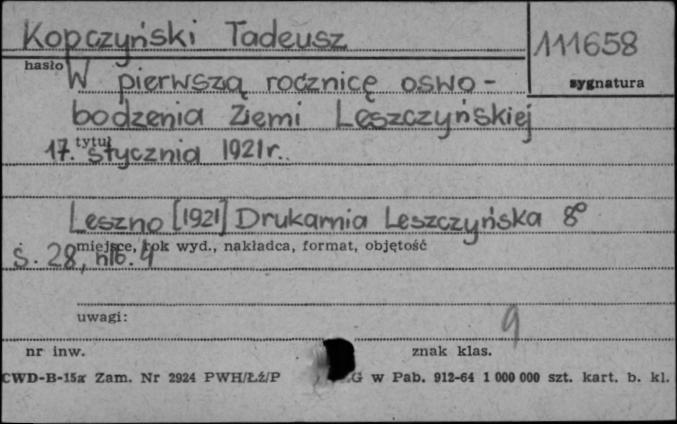 Kopczyński Tadeusz
111658
hasło
sygnatura
W pierwszą rocznicę oswo-
bodzenia Ziemi Leszczyńskiej
tytuł
17. stycznia 1921 r.
Leszno [1921] Drukarnia Leszczyńska 8°
miejsce, rok wyd., nakładca, format, objętość
S. 28, nlb. 4
uwagi:
9
nr inw.
znak klas.
CWD-B-15a Zam. Nr 2924 PWH/Łź/P G w Pab. 912-64 1 000 000 szt. kart. b. kl.